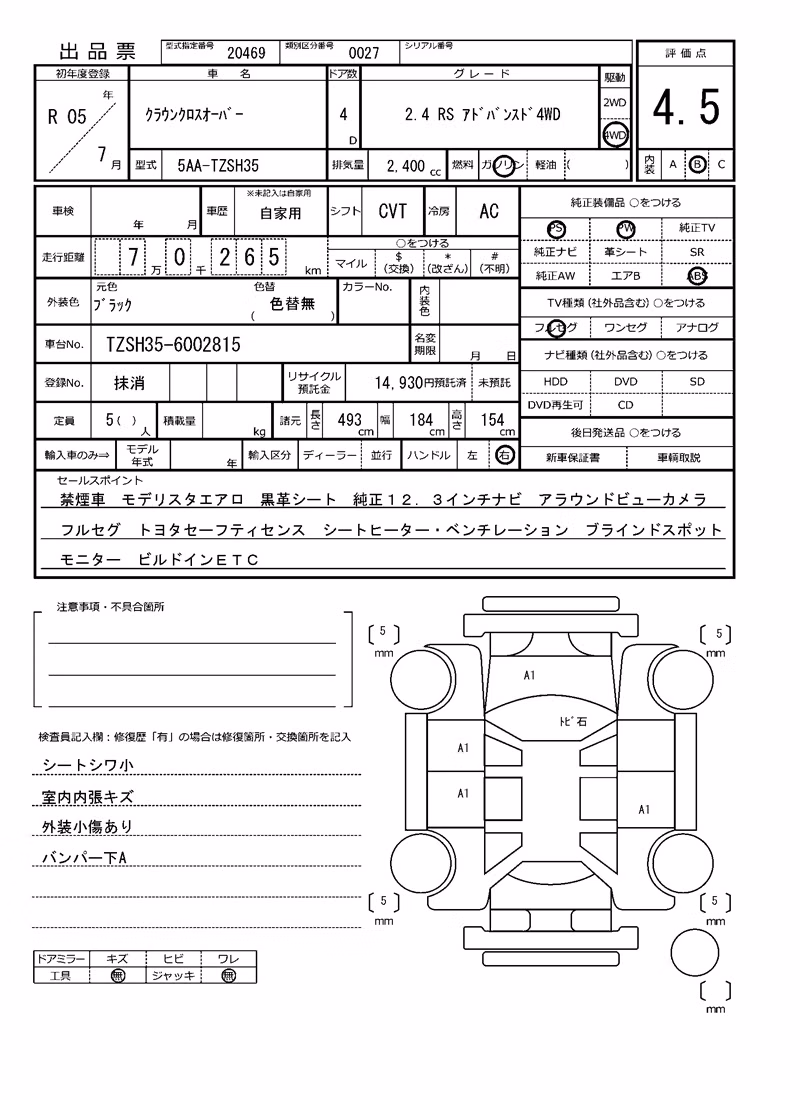 出品票 型式指定番号 20469 類別区分番号 0027 シリアル番号
評価点
4.5
内装 A B C
初年度登録 車名 ドア数 グレード 駆動
R 05 年 7 月 クラウンクロスオーバー 4 D 2.4 RS アドバンスド4WD 2WD 4WD
型式 5AA-TZSH35 排気量 2,400 cc 燃料 ガソリン 軽油 ( )
車検 年 月 車歴 ※未記入は自家用 自家用 シフト CVT 冷房 AC
走行距離 7 万 0 千 2 6 5 km ○をつける マイル $ (交換) * (改ざん) # (不明)
外装色 元色 ブラック 色替 ( 色替無 ) カラーNo. 内装色
車台No. TZSH35-6002815 名変期限 月 日
登録No. 抹消 リサイクル預託金 14,930円預託済 未預託
定員 5( ) 人 積載量 kg 諸元 長さ 493 cm 幅 184 cm 高さ 154 cm
輸入車のみ⇒ モデル年式 年 輸入区分 ディーラー 並行 ハンドル 左 右
純正装備品 ○をつける
PS PW 純正TV
純正ナビ 革シート SR
純正AW エアB ABS
TV種類(社外品含む)○をつける
フルセグ ワンセグ アナログ
ナビ種類(社外品含む)○をつける
HDD DVD SD
DVD再生可 CD
後日発送品 ○をつける
新車保証書 車輌取説
セールスポイント
禁煙車 モデリスタエアロ 黒革シート 純正12.3インチナビ アラウンドビューカメラ
フルセグ トヨタセーフティセンス シートヒーター・ベンチレーション ブラインドスポット
モニター ビルドインETC
注意事項・不具合箇所
検査員記入欄:修復歴「有」の場合は修復箇所・交換箇所を記入
シートシワ小
室内内張キズ
外装小傷あり
バンパー下A
ドアミラー キズ ヒビ ワレ
工具 無 ジャッキ 無
5 mm
5 mm
A1
トビ石
A1
A1
A1
5 mm
5 mm
mm